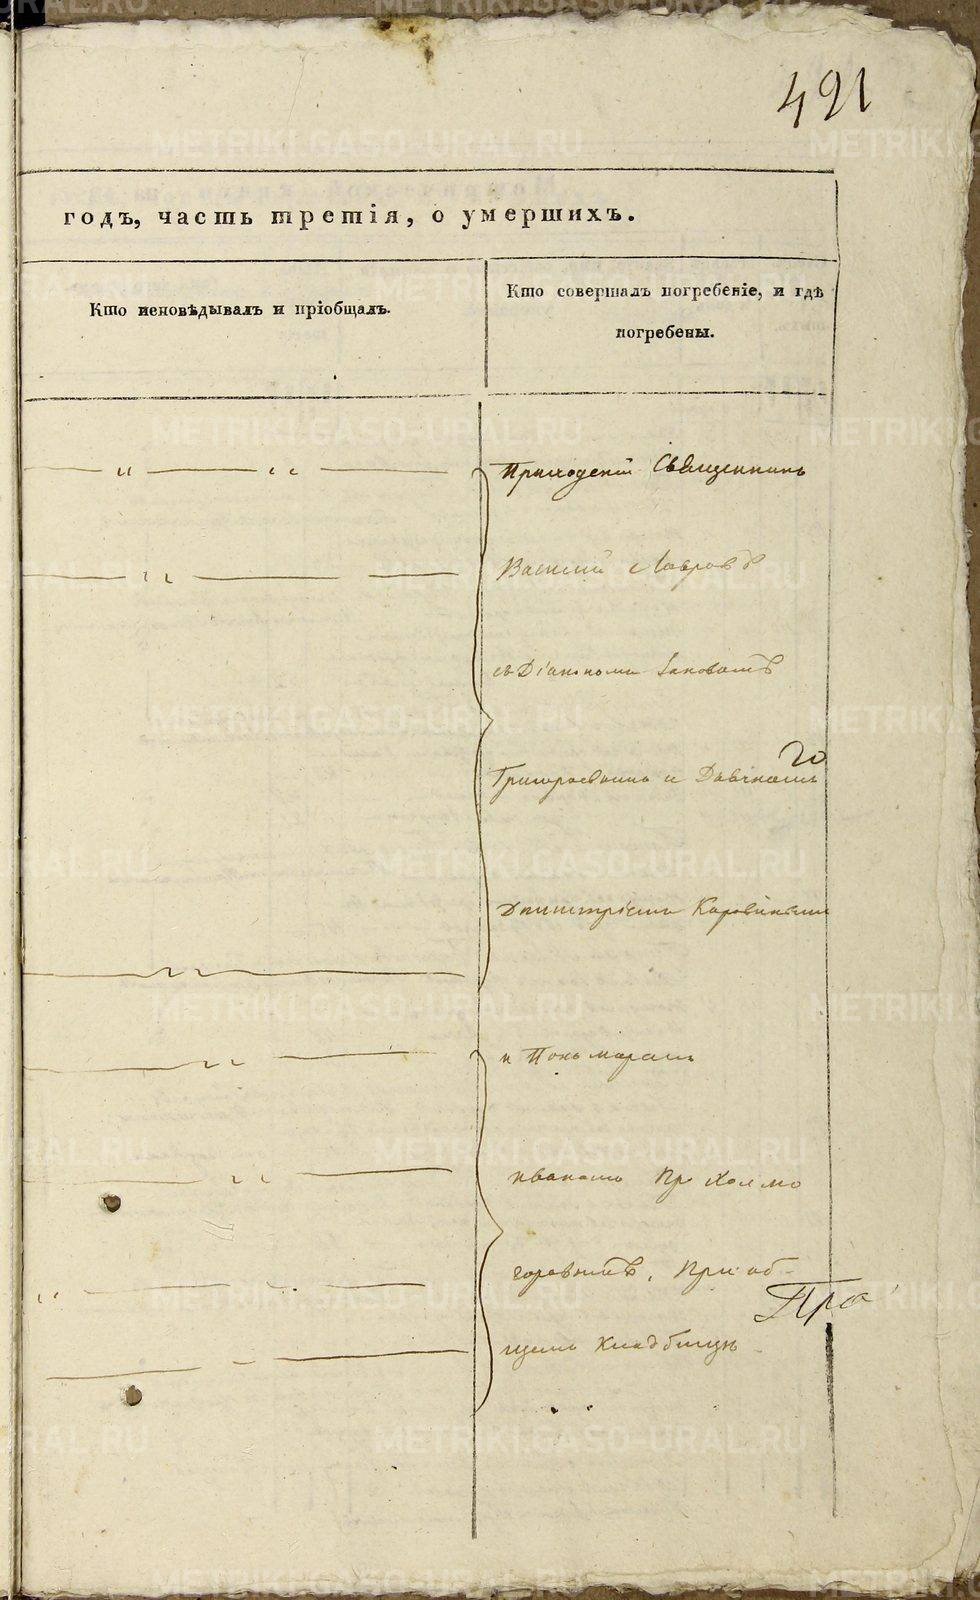 491
годъ, часть третія, о умершихъ.
Кто исповѣдывалъ и пріобщалъ.
Кто совершалъ погребеніе, и гдѣ
погребены.
Приходскій Священникъ
Василій Лавровъ
съ Діакономъ Іаковомъ
Григорьевымъ и Дьячкомъ
Димитріемъ Коровинымъ
и Пономаремъ
Иваномъ Холмо
горовымъ, При об-
щемъ Кладбищѣ
Про
METRIKI.GASO-URAL.RU